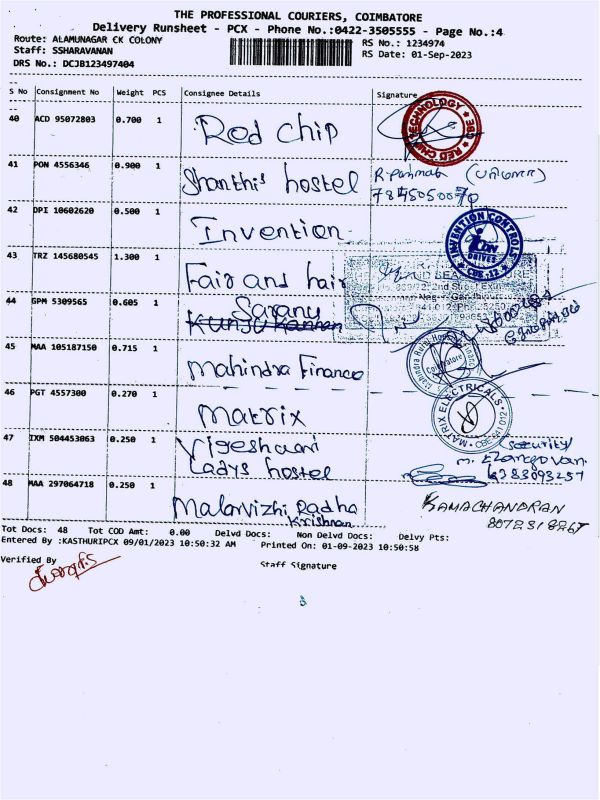 THE PROFESSIONAL COURIERS, COIMBATORE
Delivery Runsheet - PCX - Phone No.:0422-3505555 - Page No.:4
Route: ALAMUNAGAR CK COLONY
RS No.: 1234974
Staff: SSHARAVANAN
RS Date: 01-Sep-2023
DRS No.: DCJB123497404
S No Consignment No Weight PCS Consignee Details Signature
40 ACD 95072803 0.700 1 Red chip
RED CHIP TECHNOLOGY CBE
41 PON 4556346 0.900 1 Shanthis hostel
42 DPI 10602620 0.500 1 Invention
INVENTION CONTROLS
DRIVES
CBE-12
43 TRZ 145680545 1.300 1 Fair and hair
44 GPM 5309565 0.605 1 Saranu
45 MAA 105187150 0.715 1 Mahindra Finance
Coimbatore
46 PGT 4557300 0.270 1 Matrix
MATRIX ELECTRICALS
CBE 641 012
47 IXM 504453063 0.250 1 Vigeshaari
Ladys hostel
(security)
m. Elangovan
6383093257
48 MAA 297064718 0.250 1 Malarvizhi Radha
Krishnan
RAMACHANDRAN
Tot Docs: 48 Tot COD Amt: 0.00 Delvd Docs: Non Delvd Docs: Delvy Pts:
Entered By :KASTHURIPCX 09/01/2023 10:50:32 AM Printed On: 01-09-2023 10:50:58
Verified By
Staff Signature